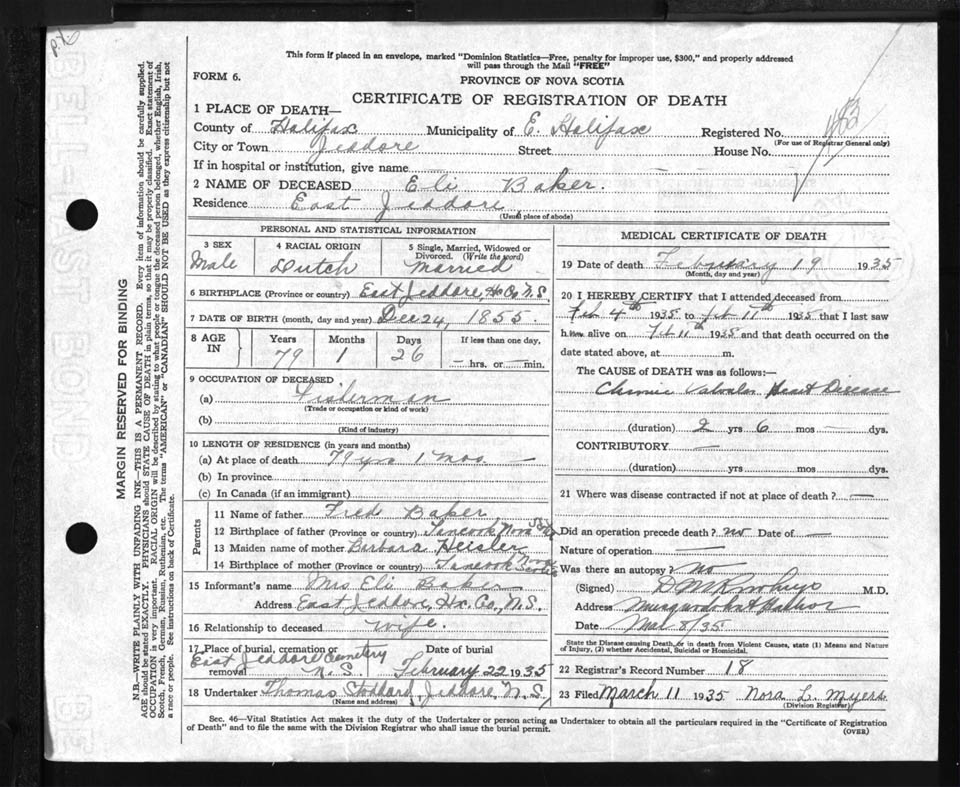 This form if placed in an envelope, marked "Dominion Statistics—Free, penalty for improper use, $300," and properly addressed
will pass through the Mail "FREE"
FORM 6.
PROVINCE OF NOVA SCOTIA
CERTIFICATE OF REGISTRATION OF DEATH
1 PLACE OF DEATH—
County of Halifax Municipality of E. Halifax Registered No.
(For use of Registrar General only)
City or Town Jeddore Street House No.
If in hospital or institution, give name
2 NAME OF DECEASED Eli Baker.
Residence East Jeddore
(Usual place of abode)
PERSONAL AND STATISTICAL INFORMATION
3 SEX 4 RACIAL ORIGIN 5 Single, Married, Widowed or
Divorced. (Write the word)
Male Dutch Married
6 BIRTHPLACE (Province or country) East Jeddore, Hx Co. N.S.
7 DATE OF BIRTH (month, day and year) Dec 24, 1855.
8 AGE IN Years Months Days If less than one day,
79 1 26 —hrs. or—min.
9 OCCUPATION OF DECEASED
(a) Fisherman
(Trade or occupation or kind of work)
(b)
(Kind of industry)
10 LENGTH OF RESIDENCE (in years and months)
(a) At place of death 79 yrs 1 mos. —
(b) In province
(c) In Canada (if an immigrant)
Parents
11 Name of father Fred Baker
12 Birthplace of father (Province or country) Tancook Nova Scotia
13 Maiden name of mother Barbara Heisler
14 Birthplace of mother (Province or country) Tancook Nova Scotia
15 Informant's name Mrs Eli Baker
Address East Jeddore, Hx. Co., N.S.
16 Relationship to deceased wife.
17 Place of burial, cremation or removal Date of burial
East Jeddore Cemetery N.S. February 22 1935
18 Undertaker Thomas Stoddard, Jeddore, N.S.
(Name and address)
MEDICAL CERTIFICATE OF DEATH
19 Date of death February 19 1935
(Month, day and year)
20 I HEREBY CERTIFY that I attended deceased from
Feb 4th 1935 to Feb 11th 1935 that I last saw
him alive on Feb 11th 1935 and that death occurred on the
date stated above, at m.
The CAUSE of DEATH was as follows:—
Chronic Valvular Heart Disease
(duration) 2 yrs 6 mos — dys.
CONTRIBUTORY —
(duration) yrs mos dys.
21 Where was disease contracted if not at place of death? —
Did an operation precede death? no Date of —
Nature of operation —
Was there an autopsy? no
(Signed) M.D.
Address Musquodoboit Harbor
Date Mar 8/35
State the Disease causing Death, or in death from Violent Causes, state (1) Means and Nature
of Injury, (2) whether Accidental, Suicidal or Homicidal.
22 Registrar's Record Number 18
23 Filed March 11 1935 Nora L. Myers
(Division Registrar)
Sec. 46—Vital Statistics Act makes it the duty of the Undertaker or person acting as Undertaker to obtain all the particulars required in the "Certificate of Registration
of Death" and to file the same with the Division Registrar who shall issue the burial permit.
(OVER)
MARGIN RESERVED FOR BINDING
N.B.—WRITE PLAINLY WITH UNFADING INK—THIS IS A PERMANENT RECORD. Every item of information should be carefully supplied.
AGE should be stated EXACTLY. PHYSICIANS should STATE CAUSE OF DEATH in plain terms, so that it may be properly classified. Exact statement of
OCCUPATION is very important. RACIAL ORIGIN will be described by stating to what people or tongue the deceased person belonged, whether English, Irish,
Scotch, French, German, Russian, Ruthenian, etc. The terms "AMERICAN" or "CANADIAN" SHOULD NOT BE USED as they express citizenship but not
a race or people. See instructions on back of Certificate.